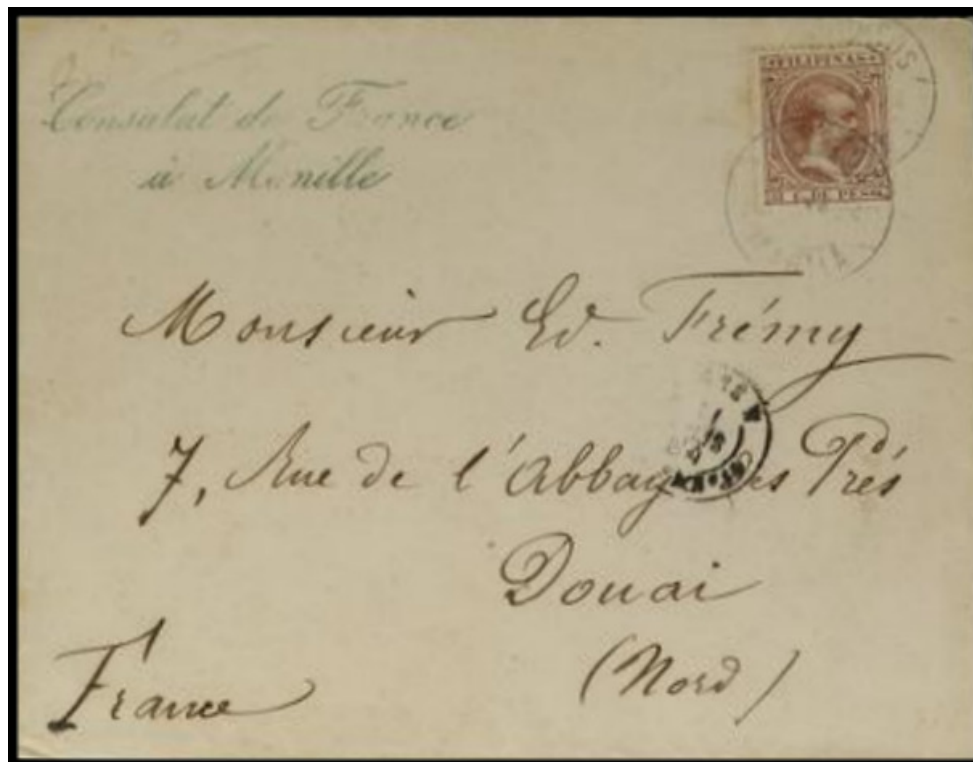 Consulat de France
à Manille
FILIPINAS
C. DE PESO
Monsieur Ed. Frémy
7, Rue de l'Abbaye des Prés
Douai
(Nord)
France